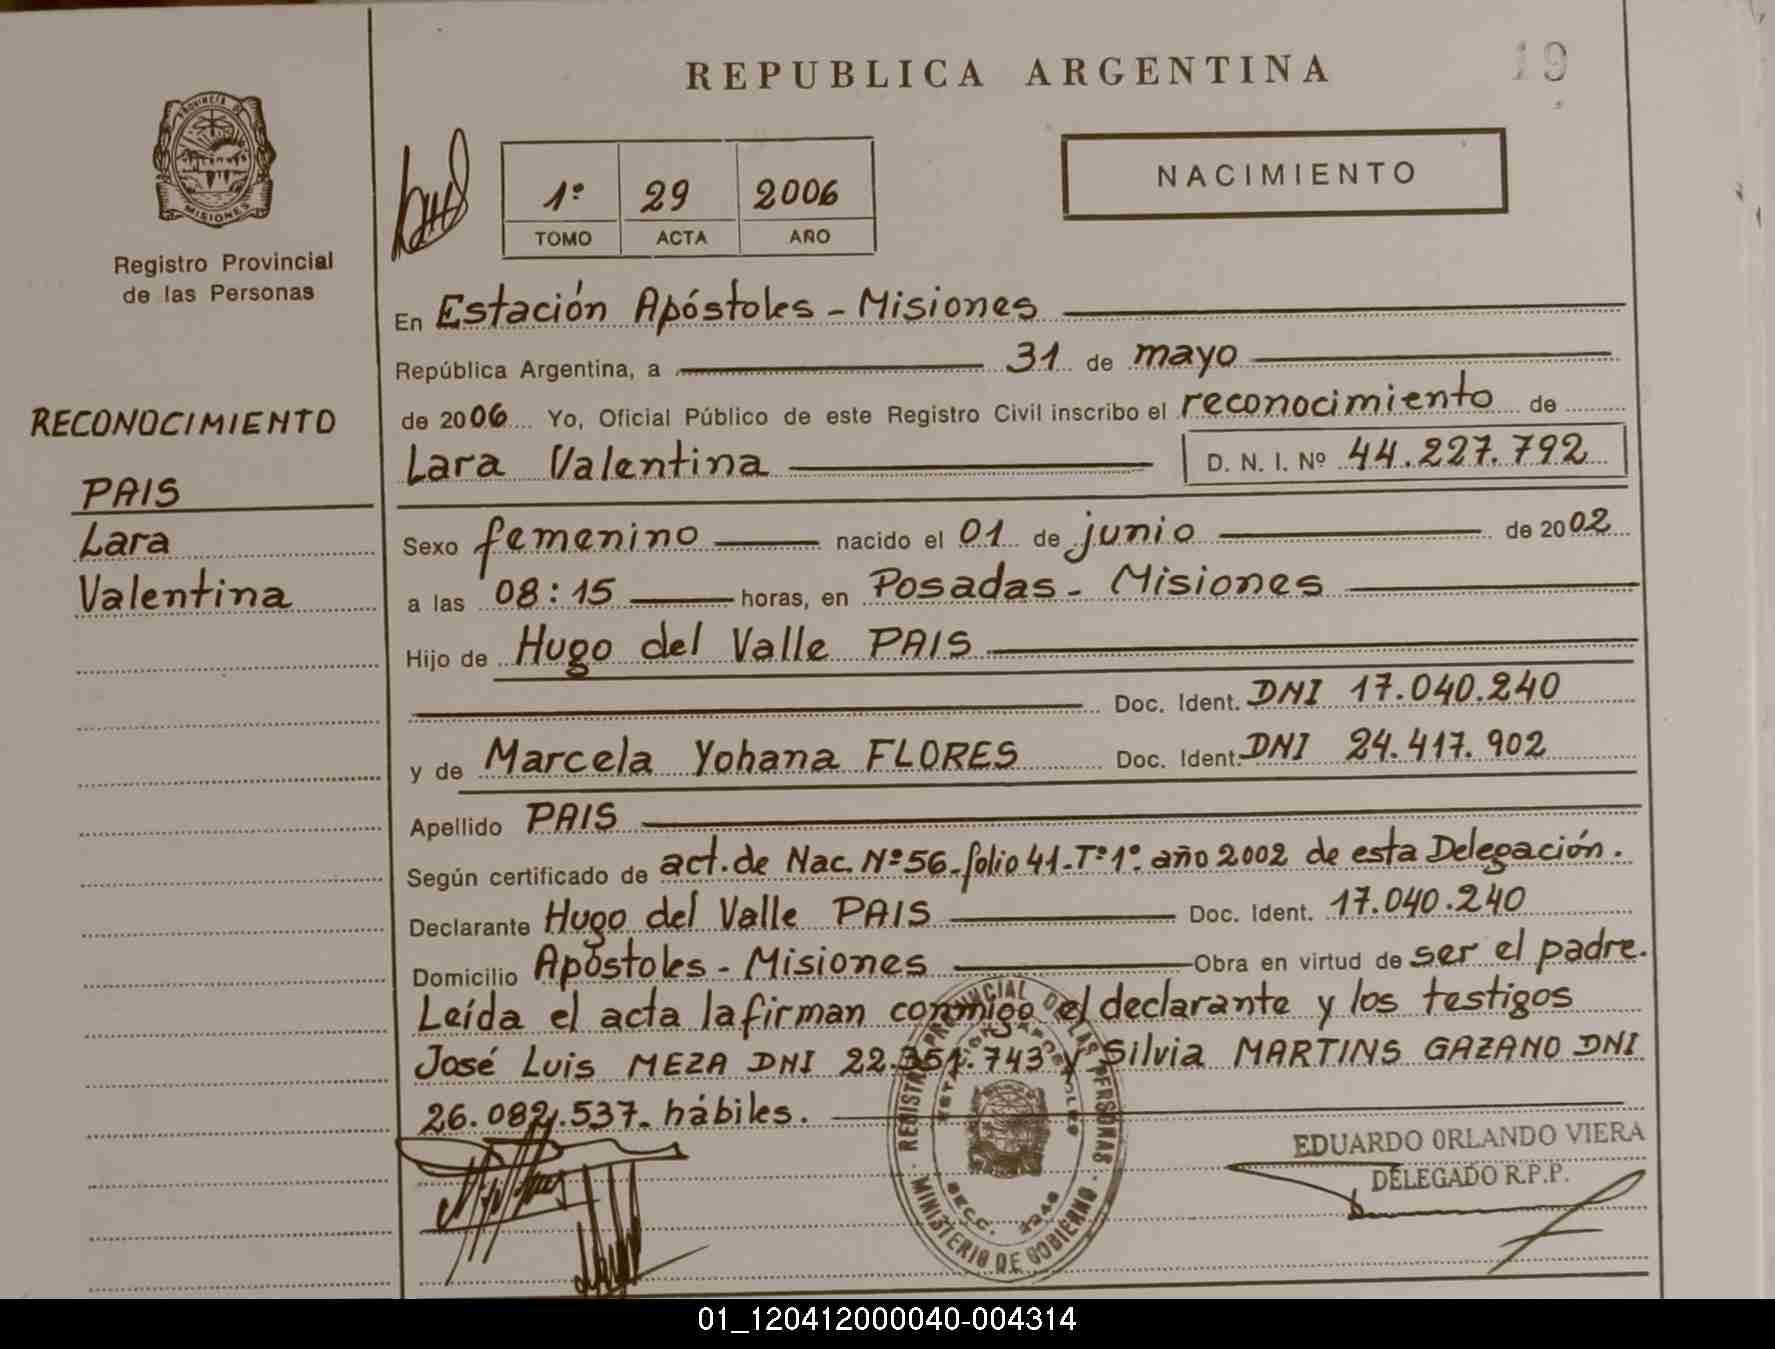 REPUBLICA ARGENTINA
19
PROVINCIA DE
MISIONES
Registro Provincial
de las Personas
1º 29 2006
TOMO ACTA AÑO
NACIMIENTO
En Estación Apóstoles - Misiones
República Argentina, a 31 de mayo
de 2006 Yo, Oficial Público de este Registro Civil inscribo el reconocimiento de
Lara Valentina D. N. I. Nº 44.227.792
RECONOCIMIENTO
PAIS
Lara
Valentina
Sexo femenino nacido el 01 de junio de 2002
a las 08:15 horas, en Posadas - Misiones
Hijo de Hugo del Valle PAIS
Doc. Ident. DNI 17.040.240
y de Marcela Yohana FLORES Doc. Ident. DNI 24.417.902
Apellido PAIS
Según certificado de act. de Nac. Nº 56 - folio 41 - Tº 1º. año 2002 de esta Delegación.
Declarante Hugo del Valle PAIS Doc. Ident. 17.040.240
Domicilio Apóstoles - Misiones Obra en virtud de ser el padre.
Leída el acta la firman conmigo el declarante y los testigos
José Luis MEZA DNI 22.351.743 y Silvia MARTINS GAZANO DNI
26.082.537. hábiles.
REGISTRO PROVINCIAL DE LAS PERSONAS
ESTACION APOSTOLES
SECC. 2246
MINISTERIO DE GOBIERNO
EDUARDO ORLANDO VIERA
DELEGADO R.P.P.
01_120412000040-004314